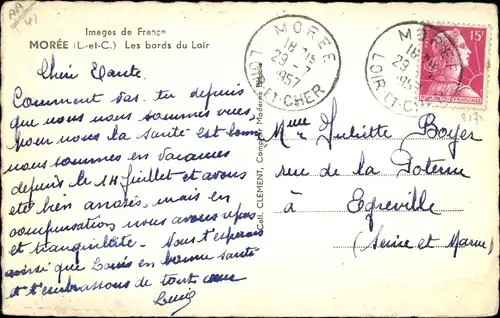 Images de France
MORÉE (L.-et-C.) Les bords du Loir
Chère Tante.
Comment vas-tu depuis
que nous nous sommes vues,
pour nous la santé est bonne
nous sommes en vacances
depuis le 14 Juillet et avons
été bien arrosés, mais en
compensation nous avons repos
et tranquillité. Nous t'espérons
ainsi que Louis en bonne santé
et t'embrassons de tout cœur
MORÉE
18
29-7
1957
LOIR-ET-CHER
MORÉE
29
1957
LOIR-ET-CHER
15F
Coll. CLEMENT, Comptoir Moderne
Mme Juliette Boyer
rue de la Poterne
à Egreville
(Seine et Marne)